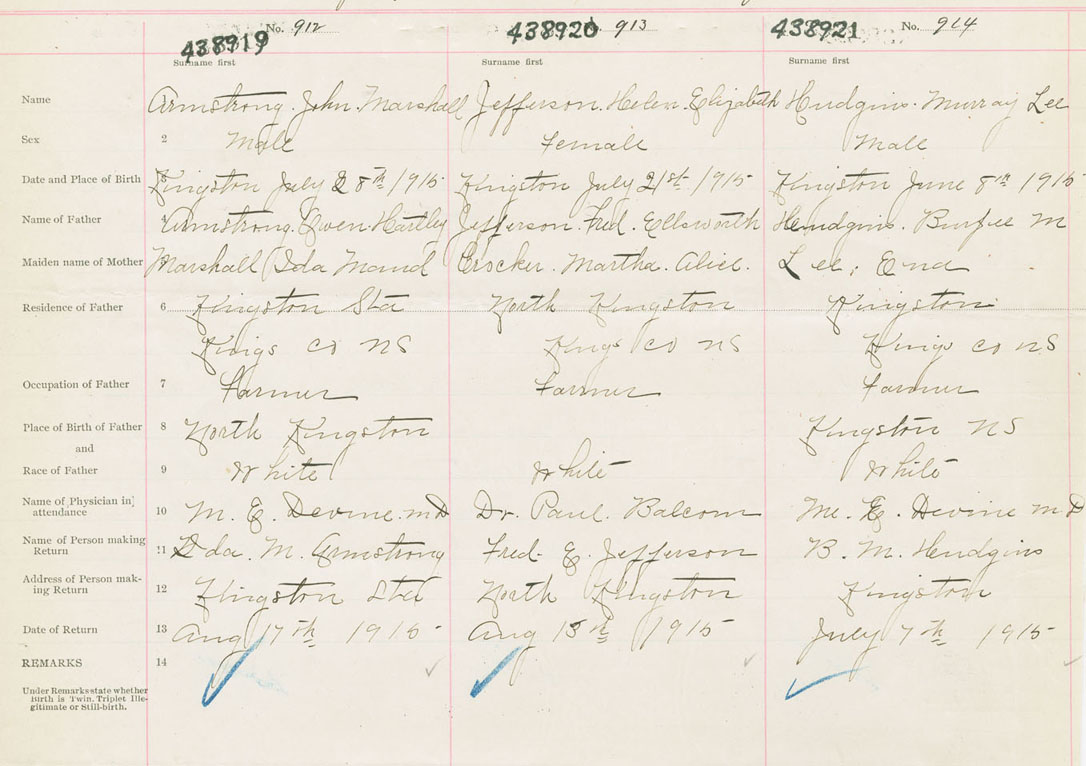 438919 No. 912 438920 913 438921 No. 914
Surname first Surname first Surname first
Name Armstrong. John. Marshall Jefferson. Helen. Elizabeth Hudgins. Murray Lee
Sex 2 Male Female Male
Date and Place of Birth 3 Kingston July 8th 1915 Kingston July 21st 1915 Kingston June 8th 1915
Name of Father 4 Armstrong. Owen. Hartley Jefferson. Fred. Ellsworth Hudgins. Burfee M
Maiden name of Mother Marshall Ida Maud Crocker. Martha. Alice. Lee; Ena
Residence of Father 6 Kingston Sta North Kingston Kingston
Kings Co NS Kings Co NS Kings Co NS
Occupation of Father 7 Farmer Farmer Farmer
Place of Birth of Father 8 North Kingston Kingston NS
and
Race of Father 9 White White White
Name of Physician in attendance 10 M. E. Devine. M D Dr. Paul. Balcom M. E. Devine M. D
Name of Person making Return 11 Ida. M. Armstrong Fred. E. Jefferson B. M. Hudgins
Address of Person mak-ing Return 12 Kingston Sta North Kingston Kingston
Date of Return 13 Aug 17th 1915 Aug 13th 1915 July 7th 1915
REMARKS 14
Under Remarks state whether
Birth is Twin, Triplet Ille-
gitimate or Still-birth.